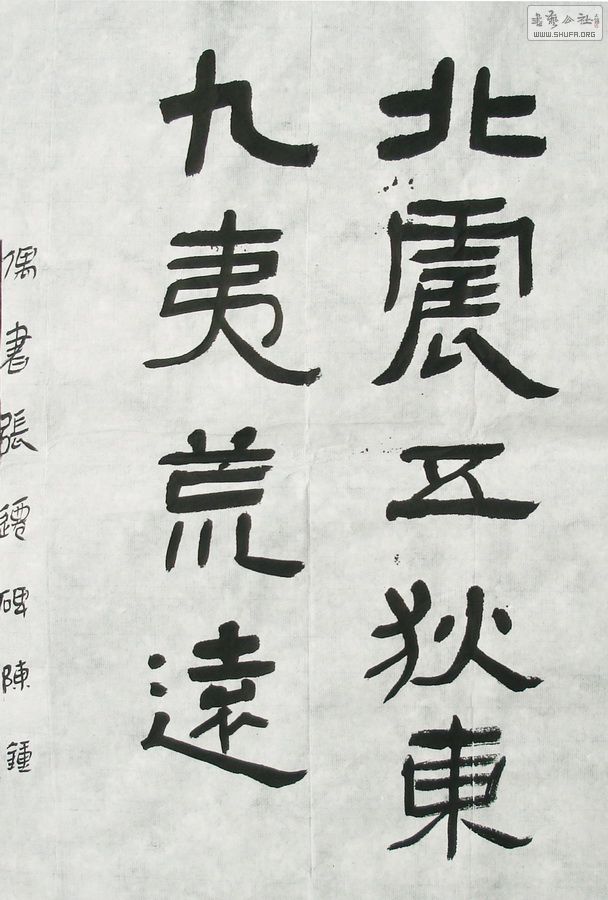 北震五狄東
九夷荒遠
偶書張遷碑陳鍾
書藝公社
WWW.SHUFA.ORG